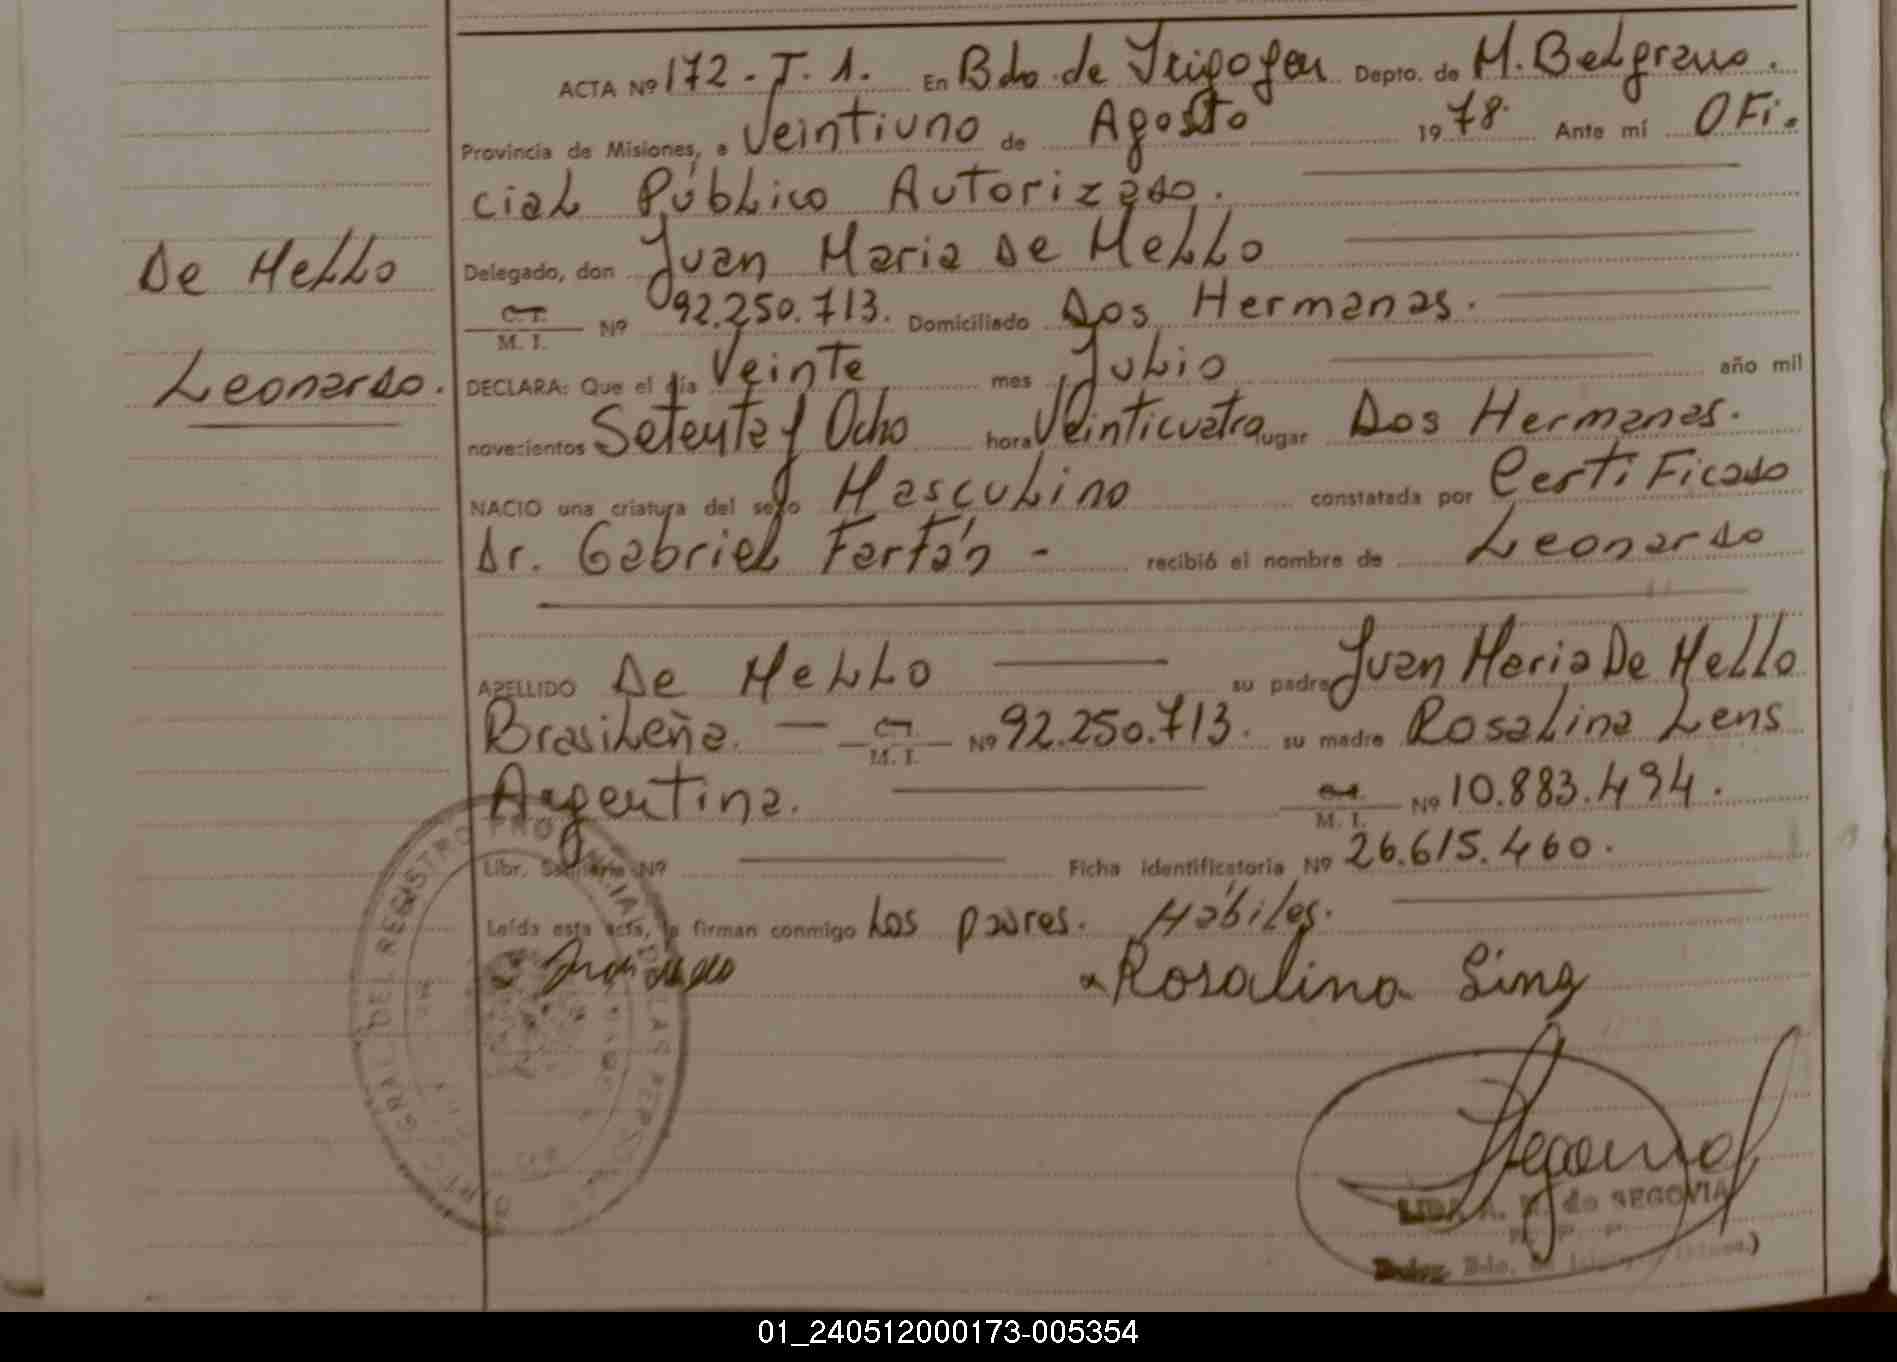 ACTA Nº 172 - T. 1. En Bdo. de Irigoyen Depto. de M. Belgrano.
Provincia de Misiones, a Veintiuno de Agosto 1978. Ante mí Ofi.
cial Público Autorizado.
De Mello
Delegado, don Juan Maria De Mello
C. I. / M. I. Nº 92.250.713. Domiciliado Dos Hermanas.
Leonardo.
DECLARA: Que el día Veinte mes Julio año mil
novecientos Setenta y Ocho hora Veinticuatro lugar Dos Hermanas.
NACIO una criatura del sexo Masculino constatada por Certificado
Dr. Gabriel Farfán - recibió el nombre de Leonardo
APELLIDO De Mello su padre Juan Maria De Mello
Brasileña. M. I. Nº 92.250.713. su madre Rosalina Lens
Argentina. M. I. Nº 10.883.494.
Libr. Sanitaria Nº Ficha identificatoria Nº 26.615.460.
Leída esta acta, la firman conmigo Los padres. Hábiles.
Rosalina Ling
DEL REGISTRO PROVINCIAL DE LAS PERSONAS
de SEGOVIA
01_240512000173-005354